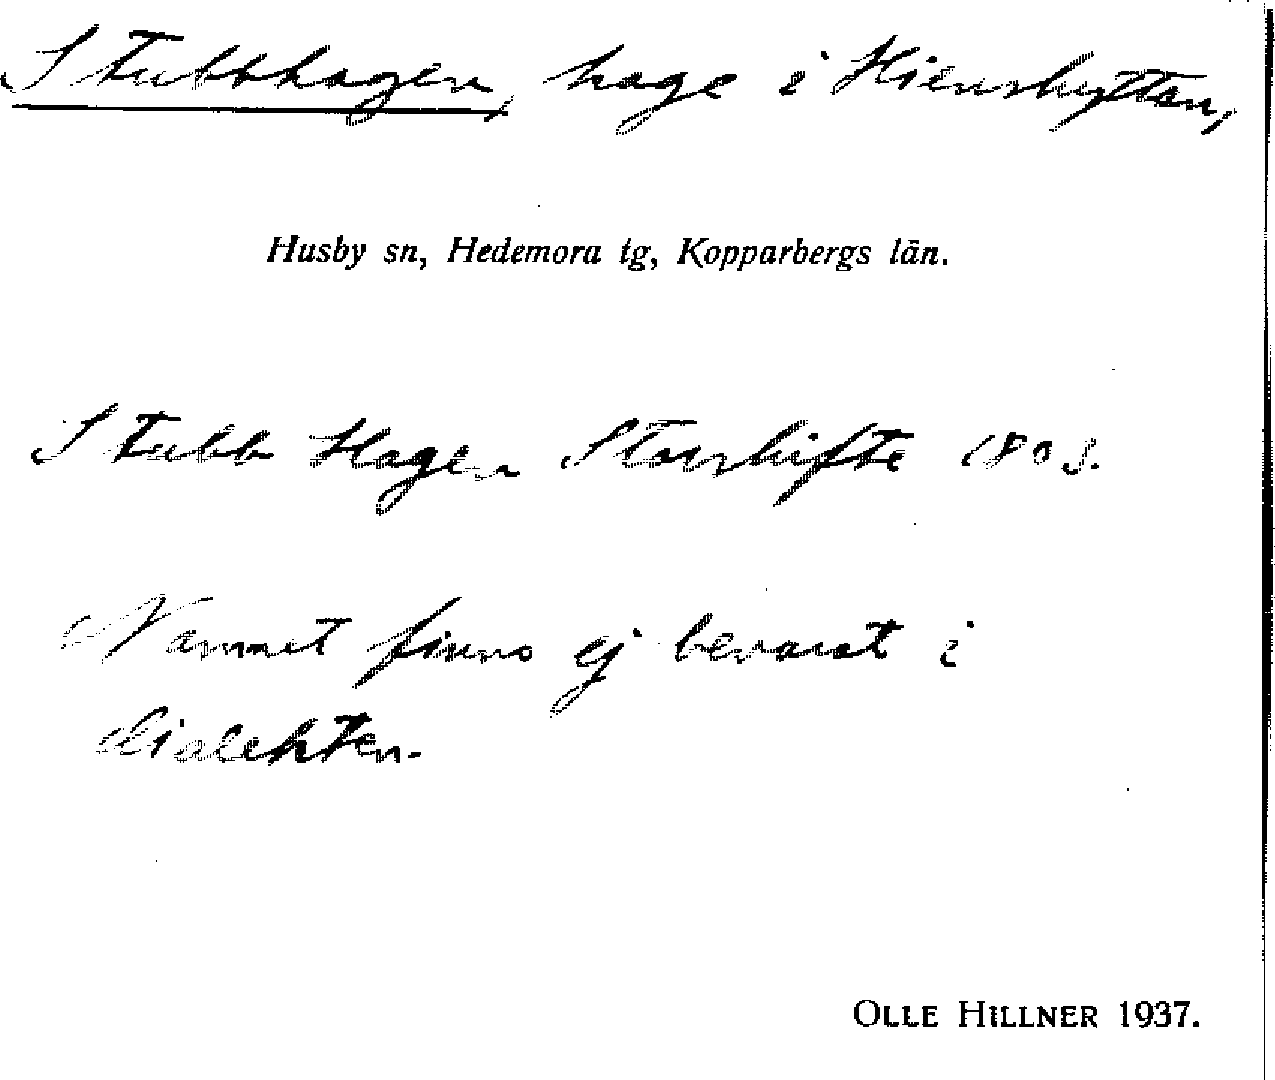 Stubbhagen, hage i Hienshyttan,
Husby sn, Hedemora tg, Kopparbergs län.
Stubb Hagen Storskifte 1803.
Namnet finns ej bevarat i
dialekten.
OLLE HILLNER 1937.